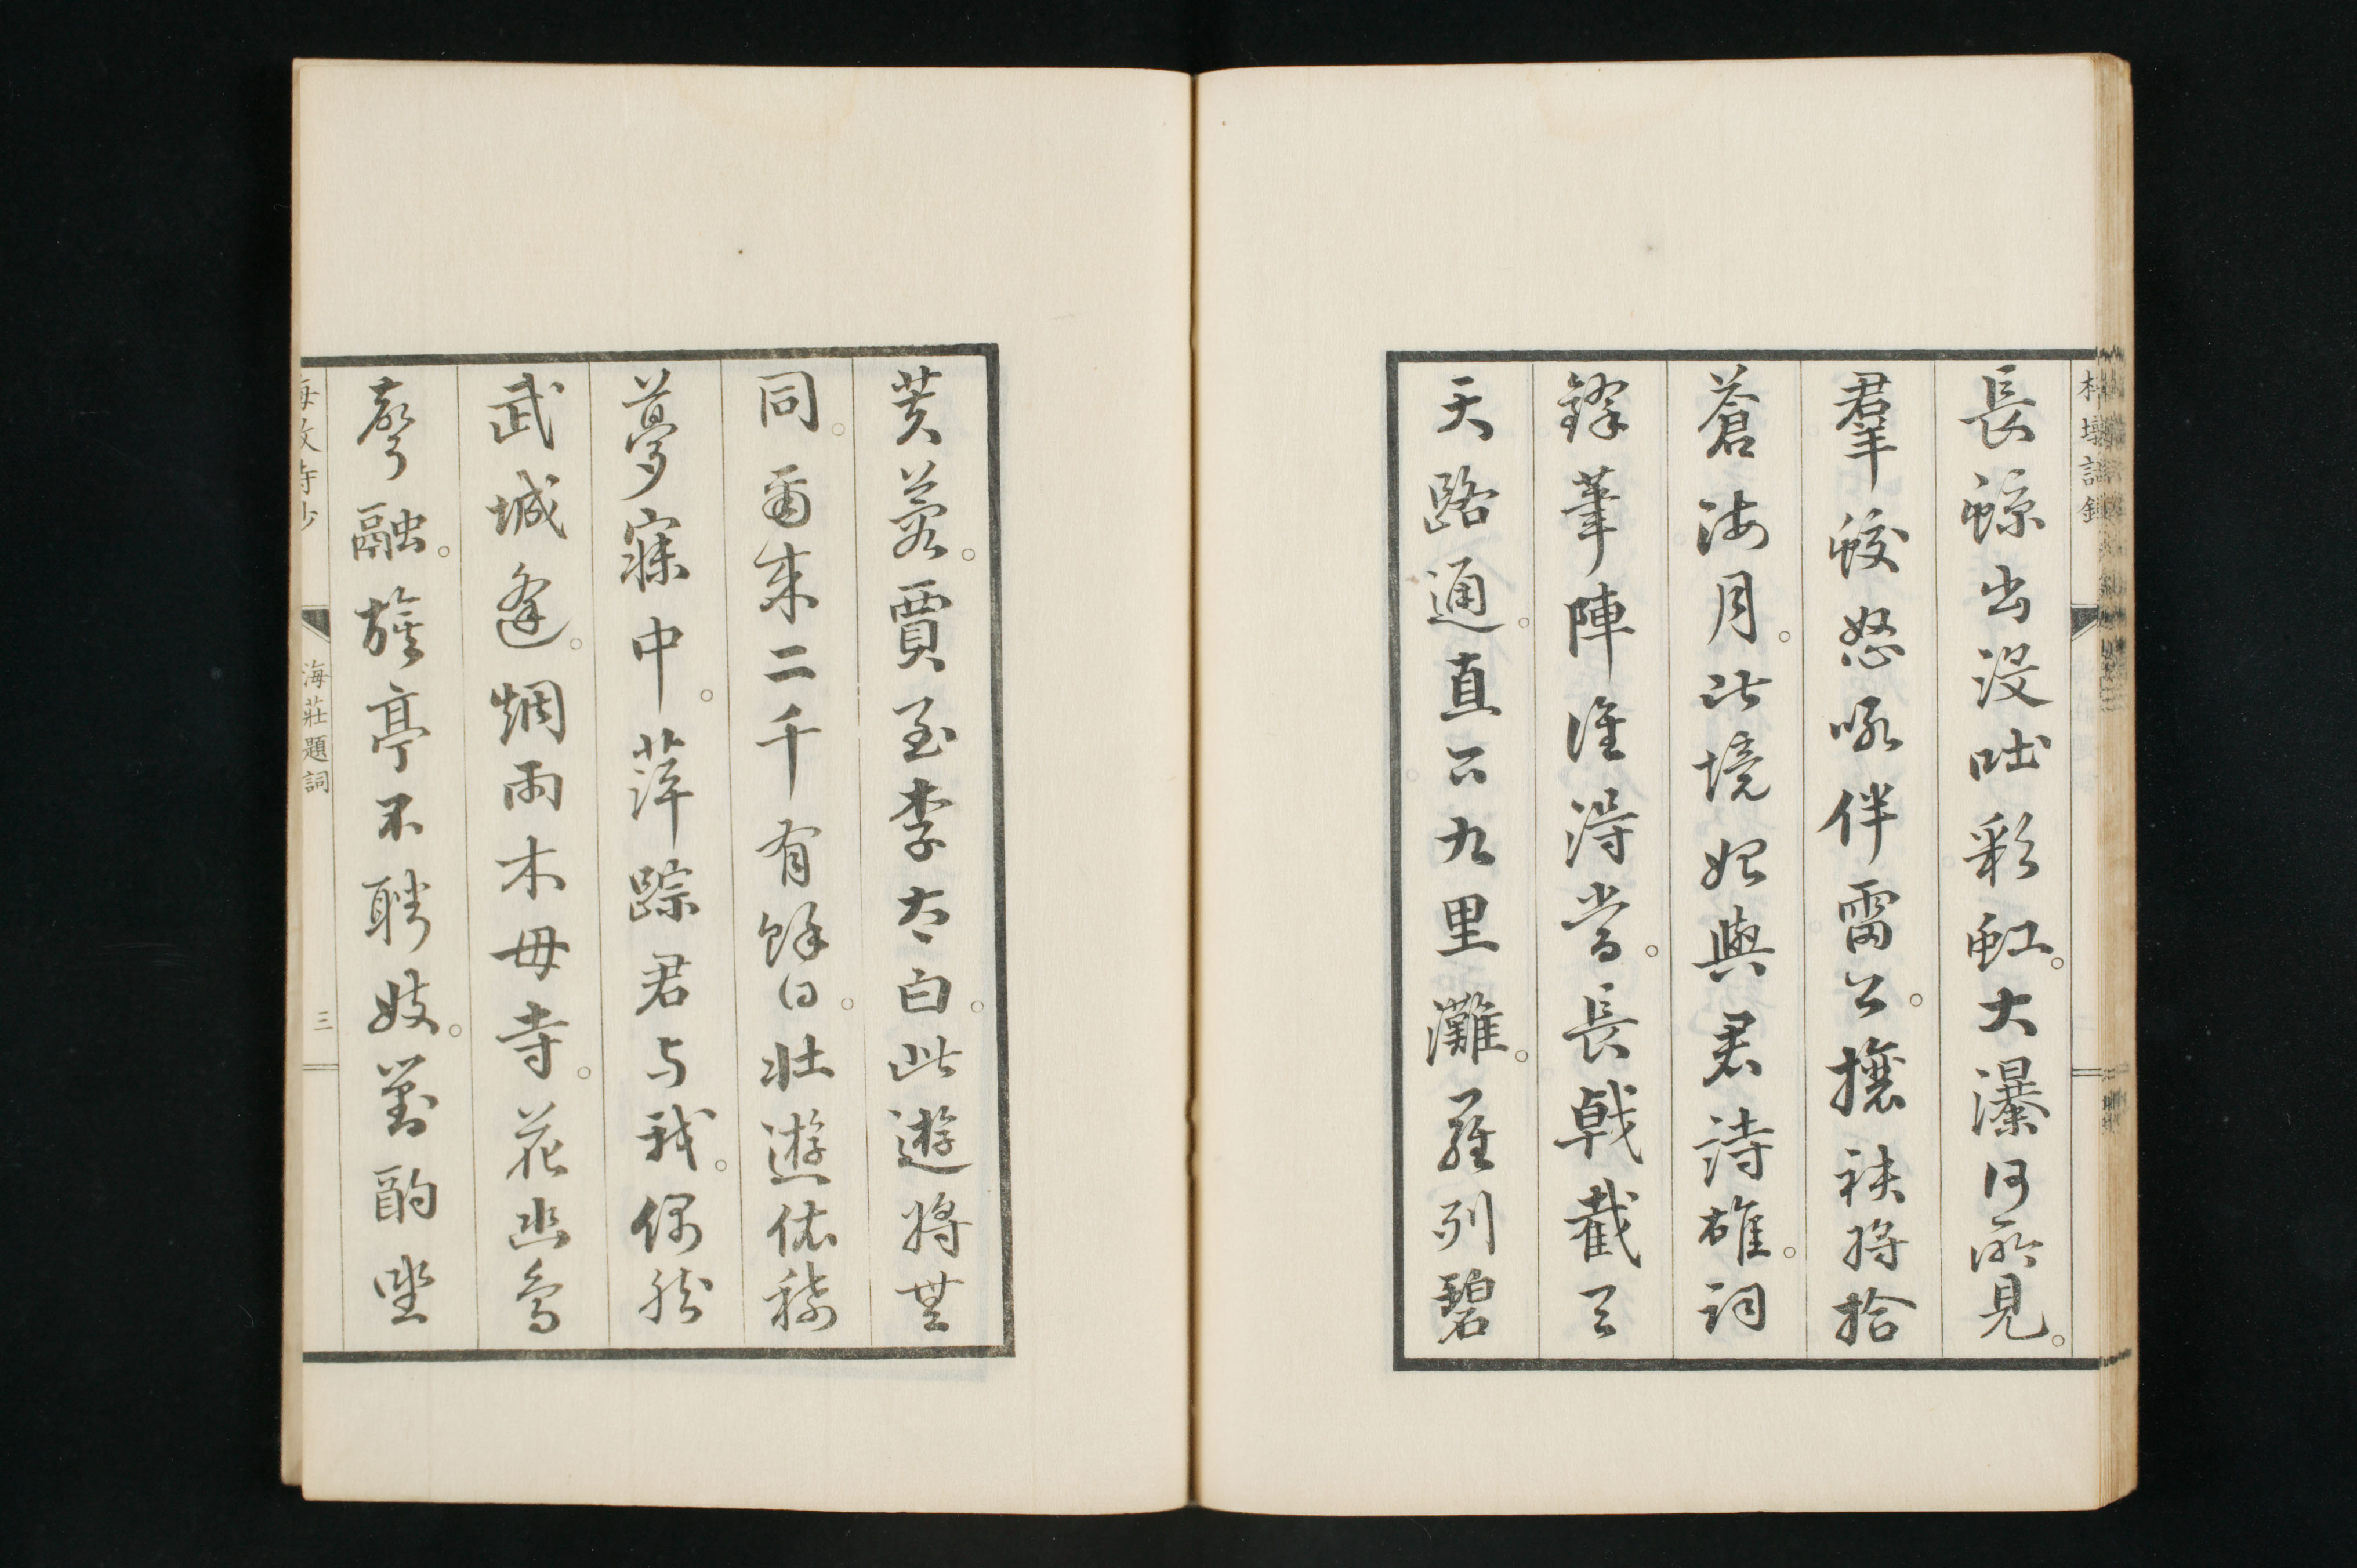 長鯨出没吐彩虹。大瀑何所見。
羣蛟怒吼伴雷公。攘袂將拾
蒼海月。此境始與君詩雄。詞
鋒筆陣誰得當。長戟截云
天路通。直下九里灘。羅列碧
芙蓉。賈至李太白。此遊將無
同。爾来二千有餘日。壯遊依稀
夢寐中。萍踪君与我。偶然
武城逢。烟雨木母寺。花幽鳥
聲融。旗亭不聘妓。對酌坐
海莊題詞 三